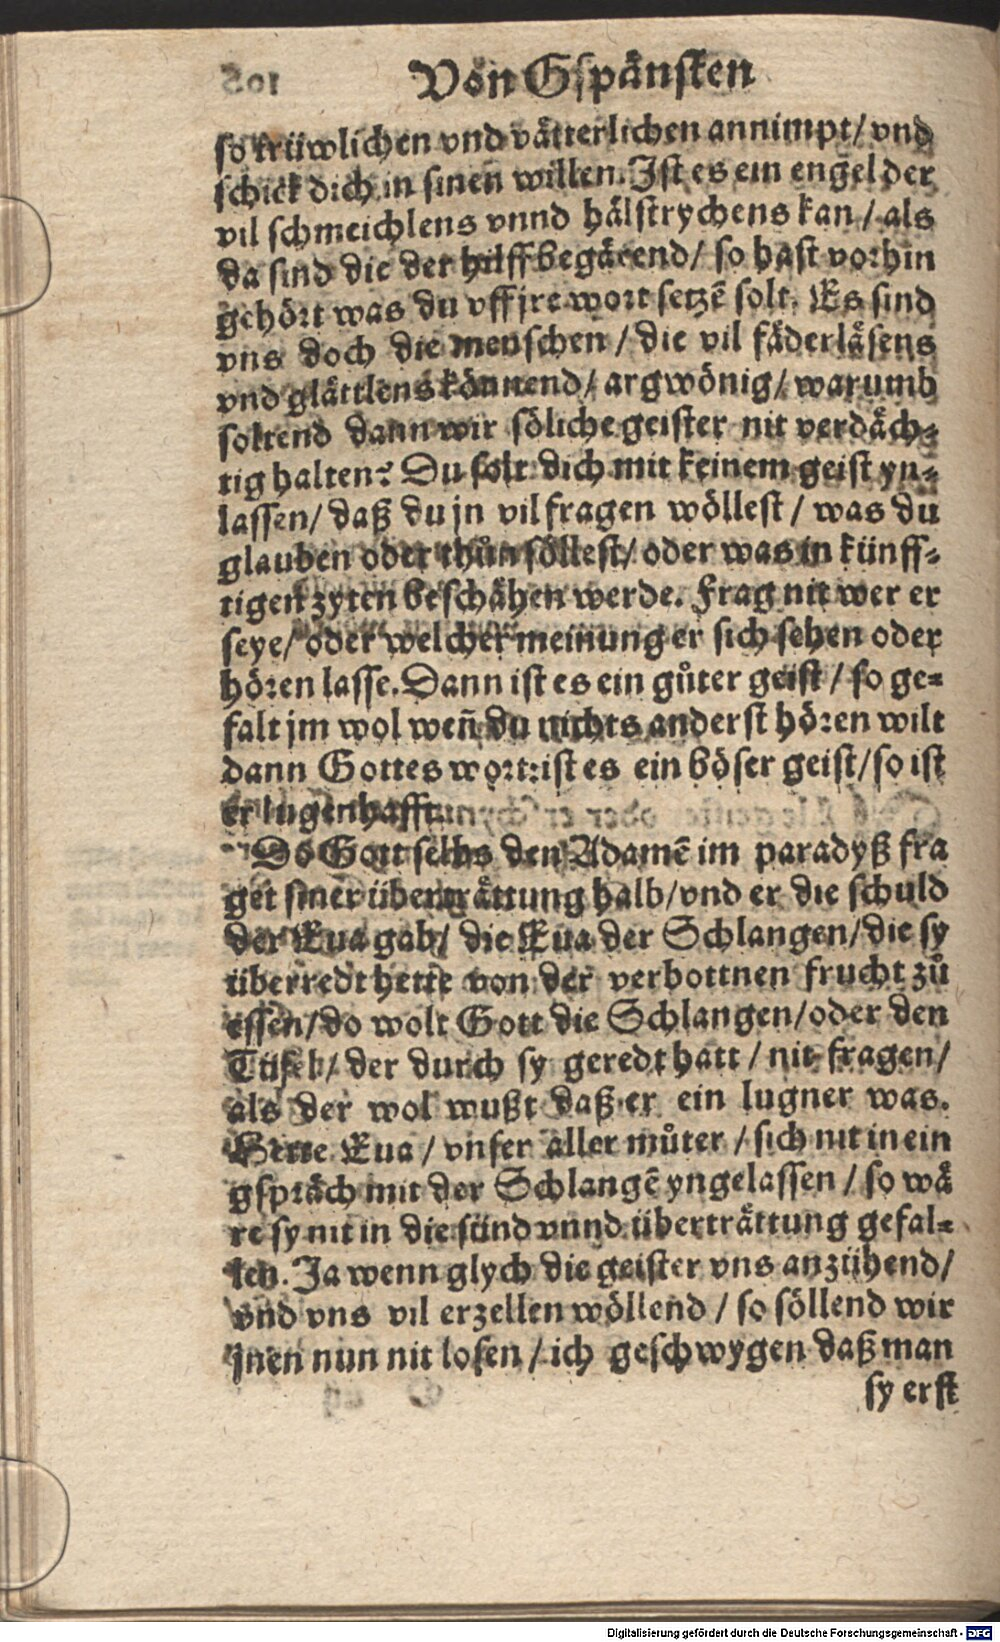 Von Gspänsten
so trüwlichen vnd vätterlichen annimpt/ vnd
schick dich in sinen willen. Ist es ein engel der
vil schmeichlens vnnd hälstrychens kan / als
da sind die der hilff begärend/ so hast vorhin
gehört was du vff jre wort setzē solt. Es sind
vns doch die menschen / die vil fäderläsens
vnd glättlens könnend/ argwönig/ warumb
soltend dann wir söliche geister nit verdäch⸗
tig halten? Du solt dich mit keinem geist yn⸗
lassen/ daß du jn vil fragen wöllest / was du
glauben oder thůn söllest/ oder was in künff⸗
tigen zyten beschähen werde. Frag nit wer er
seye/ oder welcher meinung er sich sehen oder
hören lasse. Dann ist es ein gůter geist / so ge⸗
falt jm wol wen̄ du nichts anderst hören wilt
dann Gottes wort: ist es ein böser geist/ so ist
er lugenhafft.
Do Gott selbs den Adamē im paradyß fra
get siner überträttung halb/ vnd er die schuld
der Eua gab/ die Eua der Schlangen/ die sy
überredt hette von der verbottnen frucht zů
essen/ do wolt Gott die Schlangen/ oder den
Tüfel/ der durch sy geredt hatt / nit fragen/
als der wol wußt daß er ein lugner was.
Hette Eua / vnser aller můter / sich nit in ein
gspräch mit der Schlangē yngelassen / so wä
re sy nit in die sünd vnnd überträttung gefal⸗
len. Ja wenn glych die geister vns anzühend/
vnd vns vil erzellen wöllend / so söllend wir
jnen nun nit losen / ich geschwygen daß man
sy erst
Digitalisierung gefördert durch die Deutsche Forschungsgemeinschaft - DFG